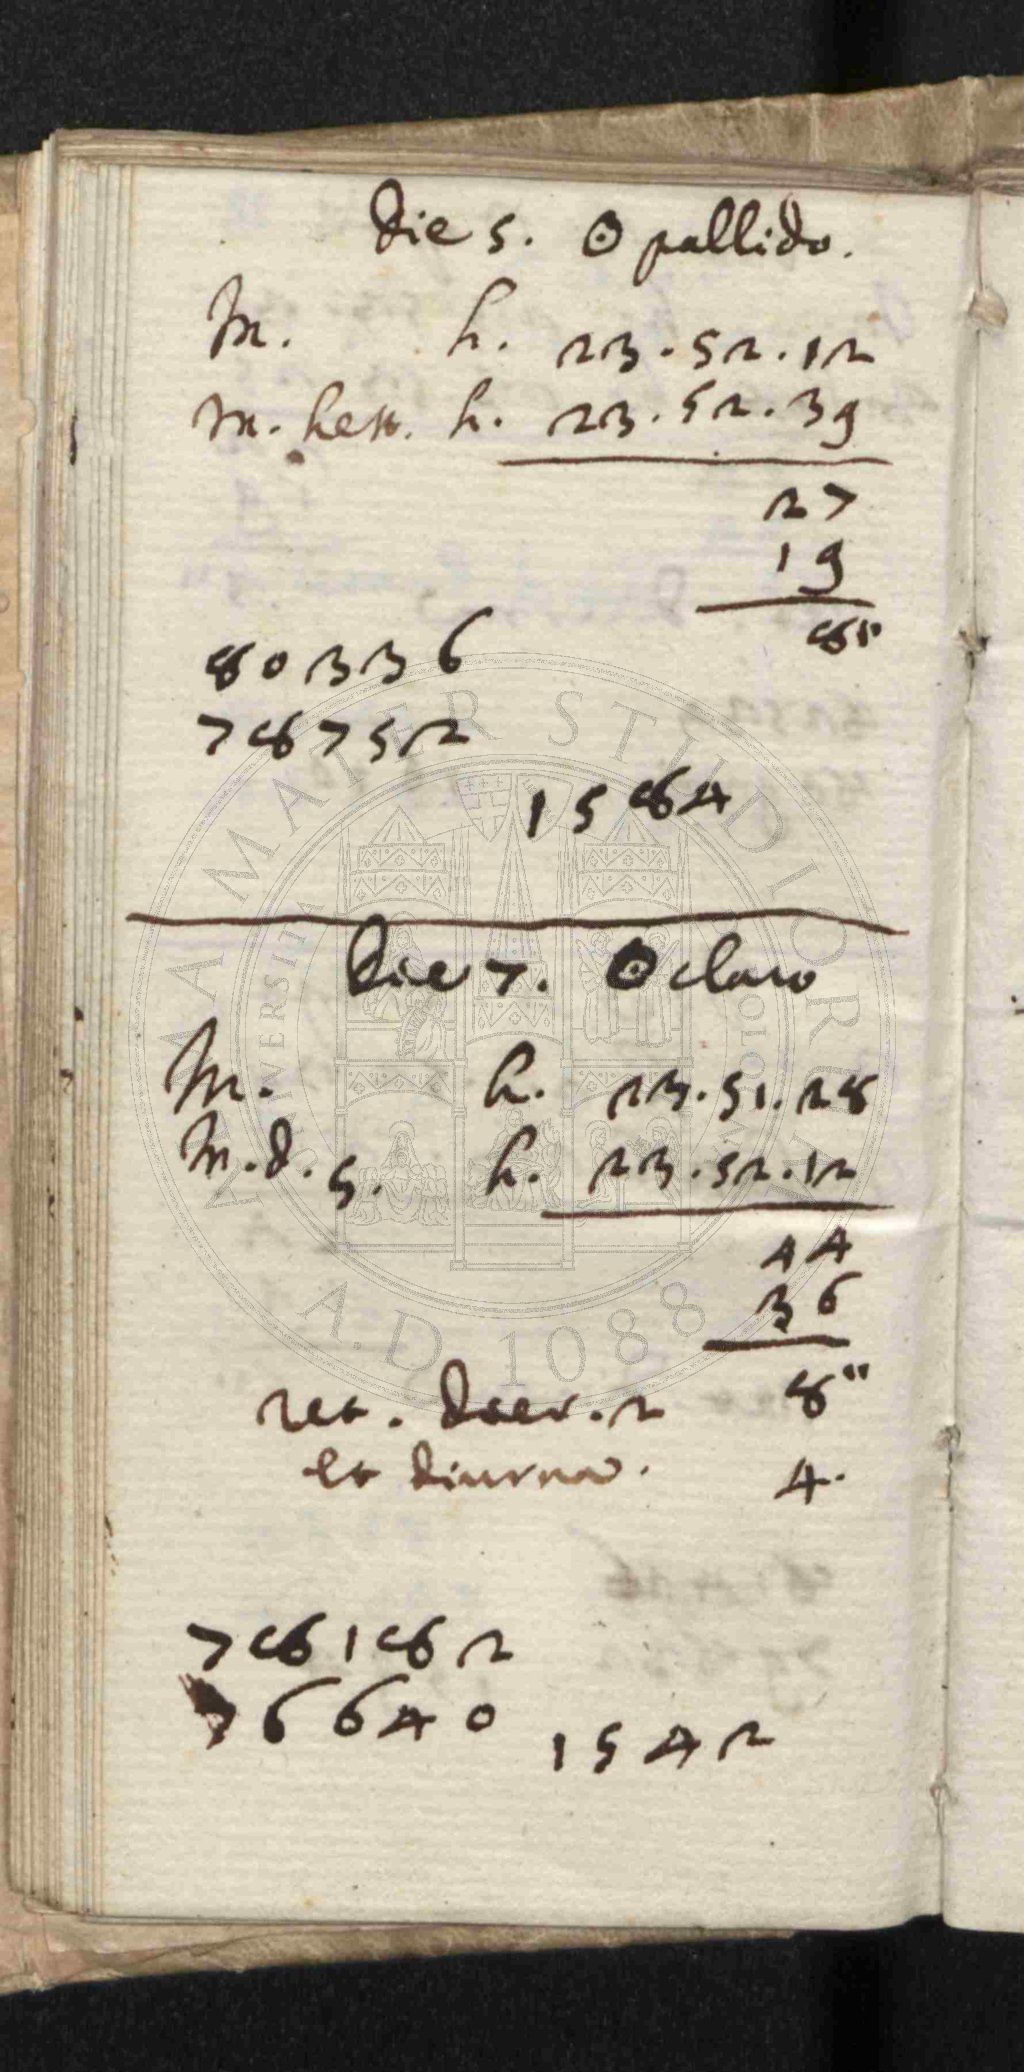 Die 5. ☉ pallido.
M. h. 23.52.12
M. hest. h. 23.52.39
27
19
8"
80336
78752
1584
Die 7. ☉ claro
M. h. 23.51.28
M. d. 5. h. 23.52.12
44
36
ret. dier. 2 8"
et diurna. 4.
78182
76640
1542
ALMA MATER STUDIORUM
A.D. 1088